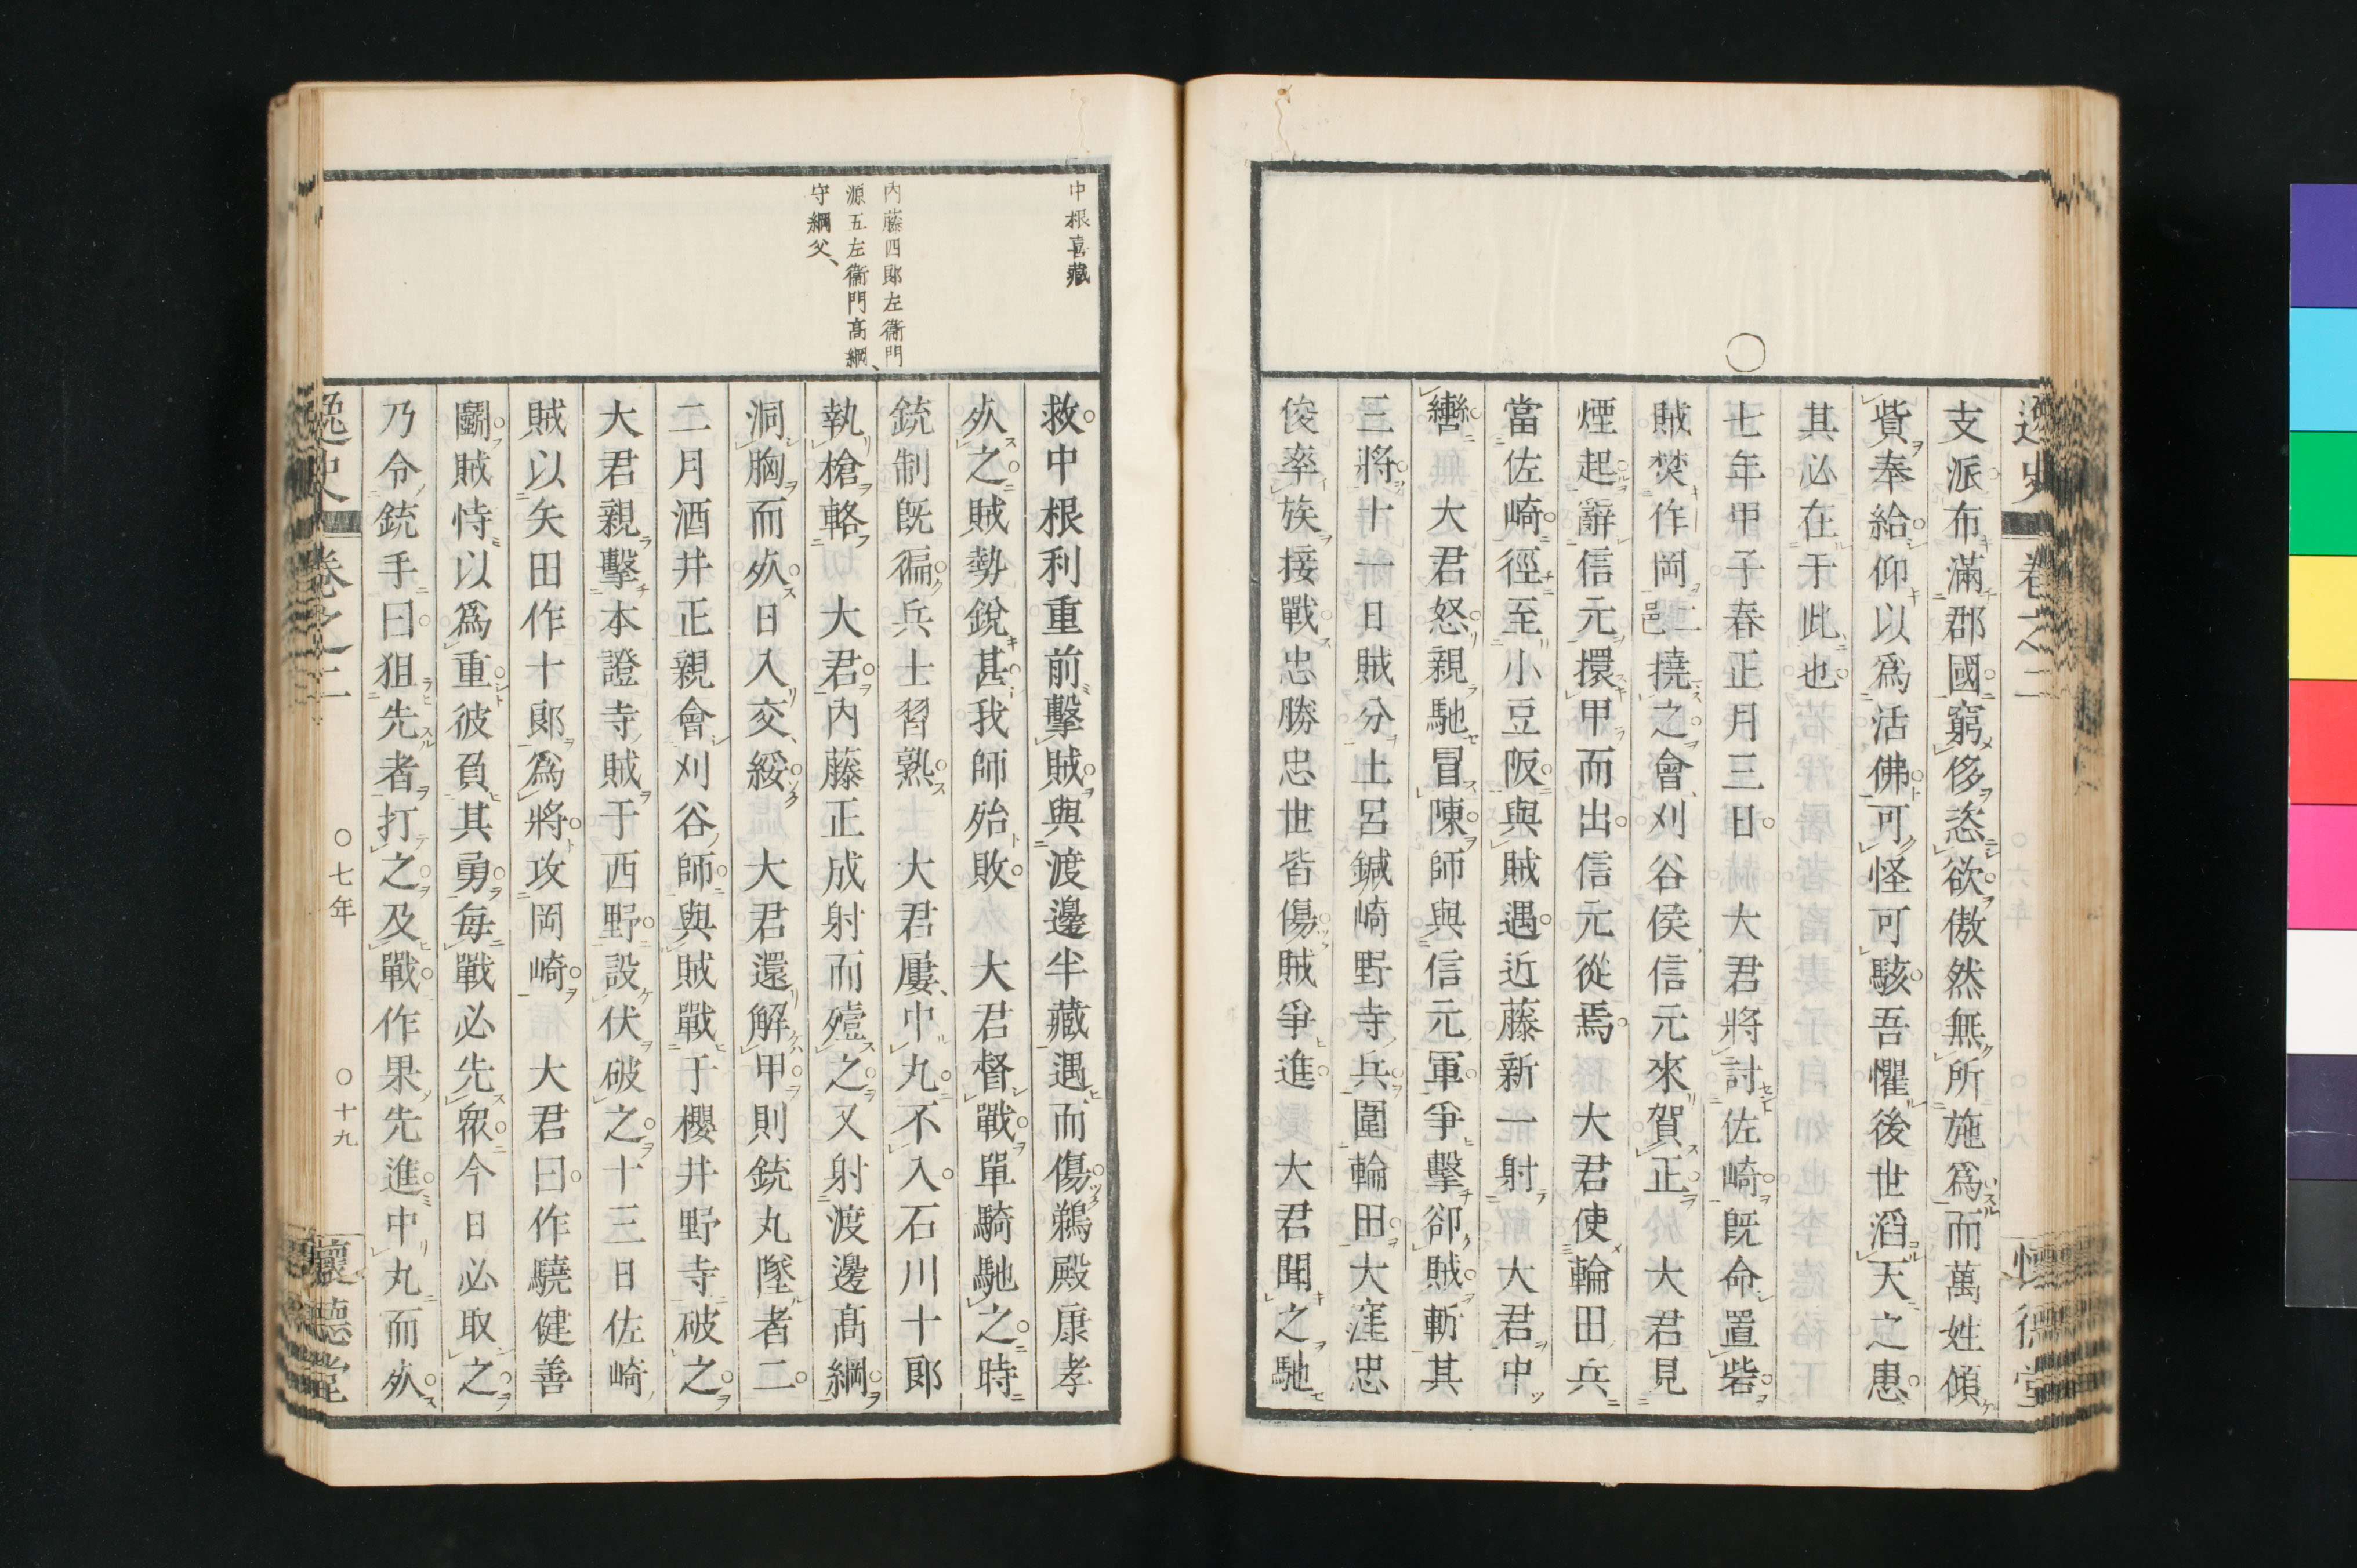 逸史 卷之二 懷德堂
支派布滿郡國窮侈恣欲傲然無所施爲而萬姓傾
貲奉給仰以爲活佛可怪可駭吾懼後世滔天之患
其必在于此也
〇
七年甲子春正月三日大君將討佐崎既命置砦
賊焚作岡二邑撓之會刈谷侯信元來賀正大君見
煙起辭信元擐甲而出信元從焉大君使輪田兵
當佐崎徑至小豆阪與賊遇近藤新一射大君中
轡無大君怒親馳冒陳師與信元軍爭擊卻賊斬其
三將十一日賊分土呂鍼崎野寺兵圍輪田大窪忠
俊率族接戰忠勝忠世皆傷賊爭進大君聞之馳
中根喜藏
救中根利重前擊賊與渡邊半藏遇而傷鵜殿康孝
㱙之賊勢銳甚我師殆敗大君督戰單騎馳之時
銃制既徧兵士習熟大君屢中丸不入石川十郞
內藤四郞左衞門
源五左衞門高綱
守綱父
執槍輅大君內藤正成射而殪之又射渡邊高綱
洞胸而㱙日入交綏大君還解甲則銃丸墜者二
二月酒井正親會刈谷師與賊戰于櫻井野寺破之
大君親擊本證寺賊于西野設伏破之十三日佐崎
賊以矢田作十郞爲將攻岡崎大君曰作驍健善
鬭賊恃以爲重彼負其勇每戰必先衆今日必取之
乃令銃手曰狙先者打之及戰作果先進中丸而㱙
逸史 卷之二 〇七年 〇十九 懷德堂